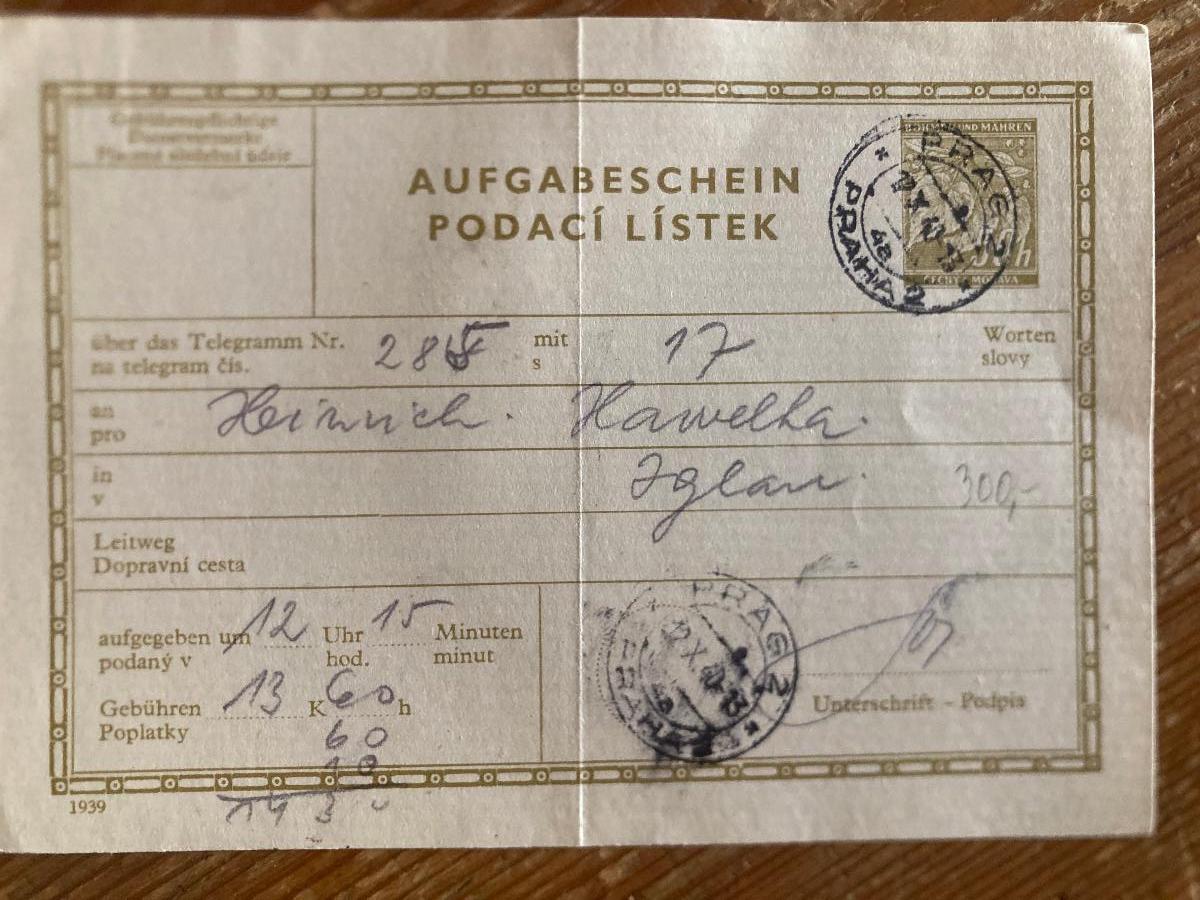 Gebührenpflichtige
Dienstvermerke
Placené služební údaje
AUFGABESCHEIN
PODACÍ LÍSTEK
BÖHMEN UND MÄHREN
h
ČECHY A MORAVA
PRAG 2
PRAHA 2
über das Telegramm Nr. 285 mit 17 Worten
na telegram čís. s slovy
an Heinrich Hawelka.
pro
in Iglau. 300,-
v
Leitweg
Dopravní cesta
aufgegeben um 12 Uhr 15 Minuten
podaný v hod. minut
Gebühren 13 K 60 h
Poplatky 60
10
PRAG 2
PRAHA 2
Unterschrift - Podpis
1939